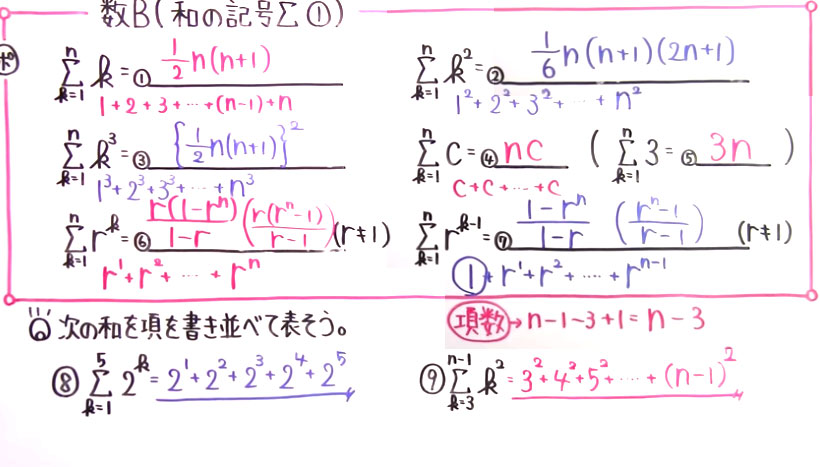 数B(和の記号Σ①)
ポ
n Σ k=1 k = ① 1/2 n(n+1)
1+2+3+…+(n-1)+n
n Σ k=1 k² = ② 1/6 n(n+1)(2n+1)
1²+2²+3²+…+n²
n Σ k=1 k³ = ③ {1/2 n(n+1)}²
1³+2³+3³+…+n³
n Σ k=1 C = ④ nc ( n Σ k=1 3 = ⑤ 3n )
c+c+…+c
n Σ k=1 r^k = ⑥ r(1-r^n)/1-r (r(r^n-1)/r-1) (r≠1)
r¹+r²+…+r^n
n Σ k=1 r^(k-1) = ⑦ 1-r^n/1-r (r^n-1/r-1) (r≠1)
①+r¹+r²+…+r^(n-1)
次の和を項を書き並べて表そう。
項数→n-1-3+1=n-3
⑧ 5 Σ k=1 2^k = 2¹+2²+2³+2⁴+2⁵
⑨ n-1 Σ k=3 k² = 3²+4²+5²+…+(n-1)²